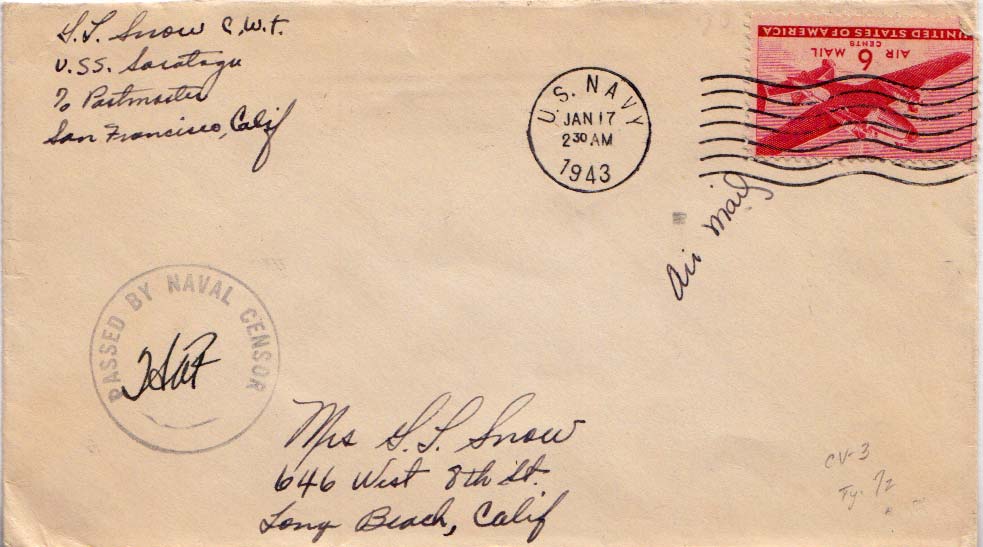 S. L. Snow C.W.T.
U.S.S. Saratoga
℅ Postmaster
San Francisco, Calif
U.S. NAVY
JAN 17
2 30 AM
1943
UNITED STATES OF AMERICA
AIR 6 MAIL
CENTS
Air Mail
PASSED BY NAVAL CENSOR
Mrs S. L. Snow
646 West 8th St.
Long Beach, Calif
CV-3
Ty.